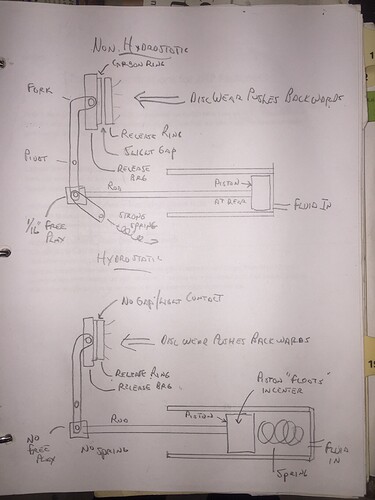 NON HYDROSTATIC
CARBON RING
FORK
DISC WEAR PUSHES BACKWARDS
RELEASE RING
SLIGHT GAP
RELEASE BRG
PIVOT
ROD
PISTON
AT REAR
FLUID IN
1/16" FREE PLAY
STRONG SPRING
HYDROSTATIC
NO GAP/LIGHT CONTACT
DISC WEAR PUSHES BACKWARDS
RELEASE RING
RELEASE BRG
PISTON "FLOATS"
IN CENTER
ROD
PISTON
NO FREE PLAY
NO SPRING
FLUID IN
SPRING